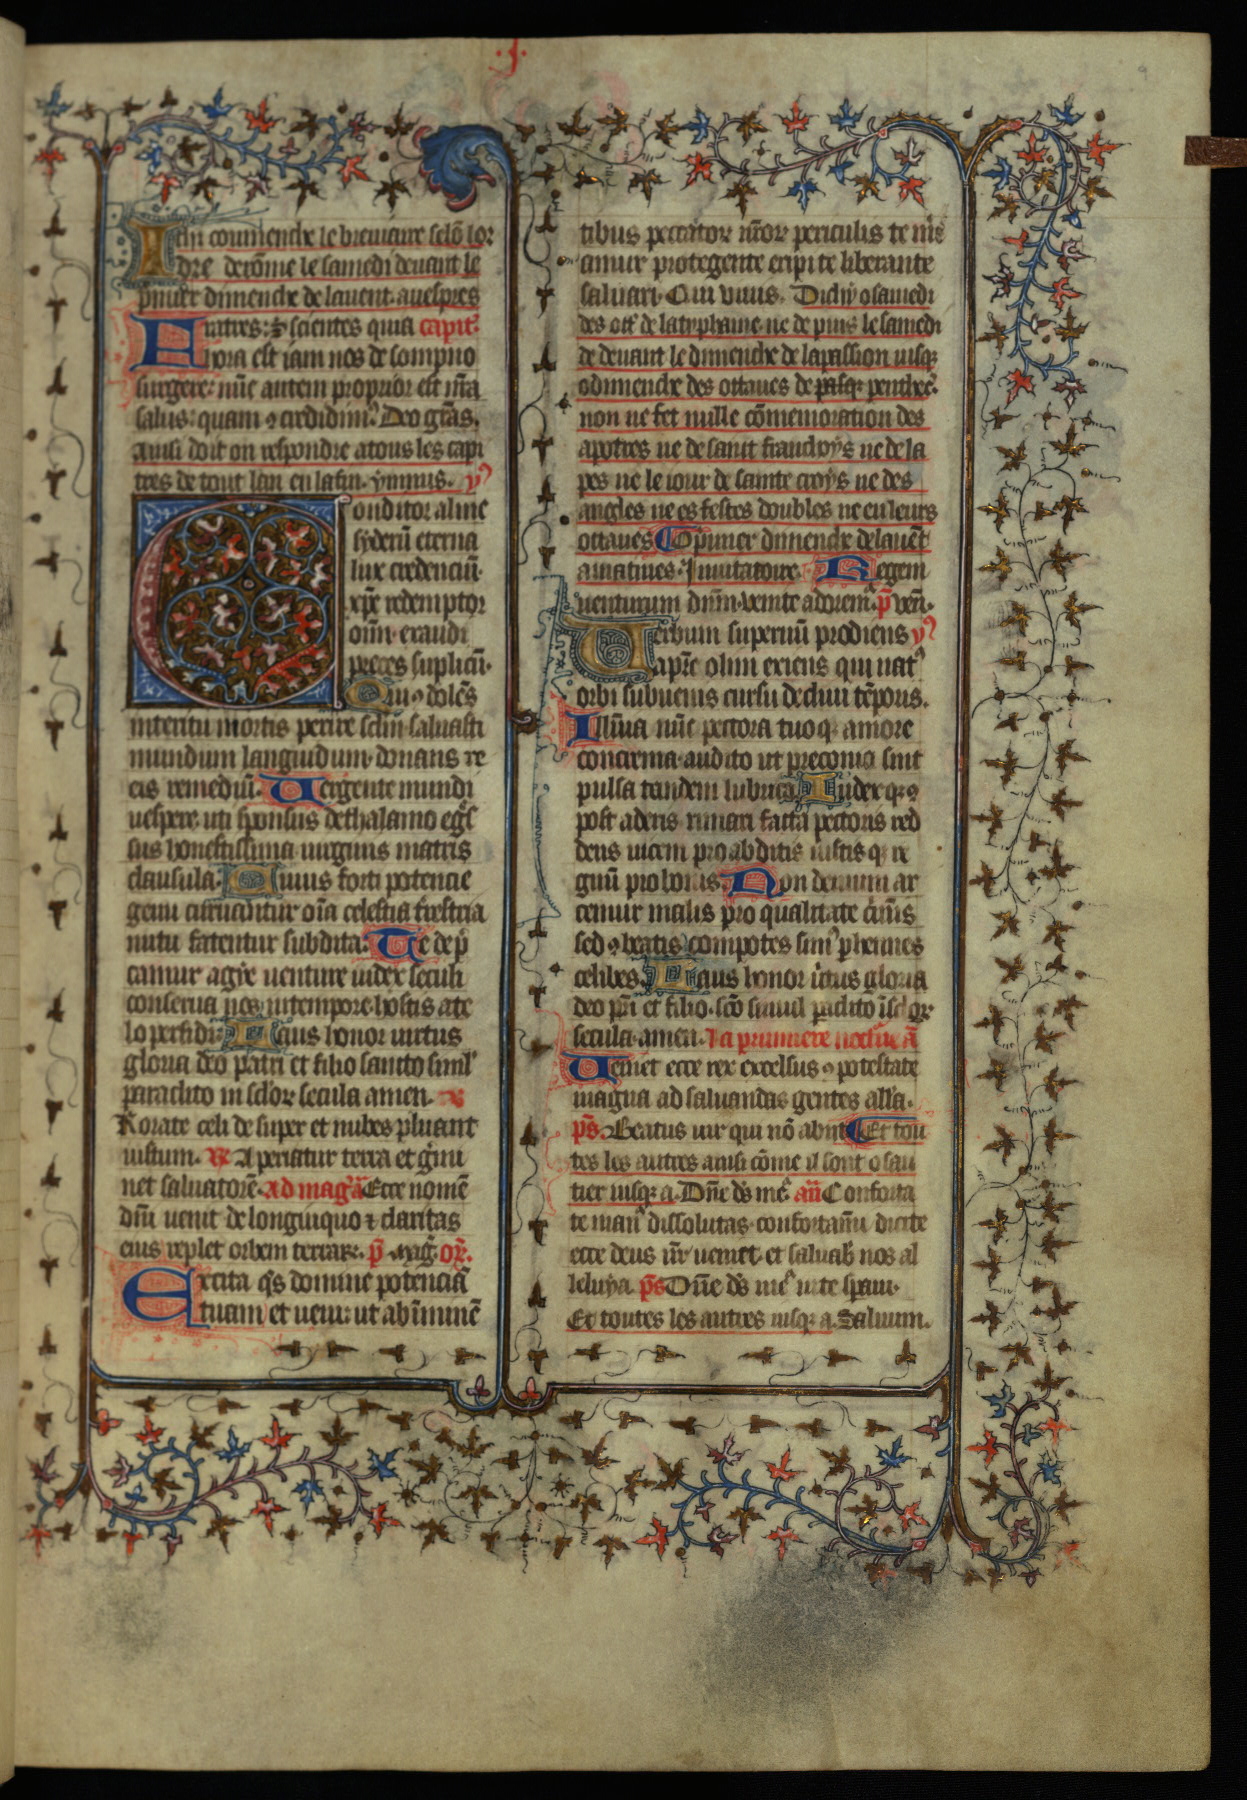 .I.
9
Ichi coummenche le breviaire selõ lor
dre derõme le samedi deuant le
p̃mier dimenche de lauent. auespres
Fratres: scientes quia capit̃.
hora est iam nos de sompno
surgere: nũc autem proprior est nr̃a
salus: quam credidim⁹. Deo gr̃as.
ainsi doit on respondre atous les capi
tres de tout lan en latin. ymnus. y⁹
Conditor alme
syderũ eterna
lux credenciũ.
xp̃e redemptor
oim̃. exaudi
preces suplicũ.
Qui ꝯdolẽs
interitu mortis perire sclm̃. saluasti
mundum languidum. donans re
eis remediũ. Uergente mundi
uespere. uti sponsus dethalamo egr̃s
sus honestissima uirginis matris
clausula. Cuius forti potencie
genu curuantur oĩa celestia t̃restria
nutu fatentur subdita. Te de p̃
camur agye uenture iudex seculi
conserua nos intempore. hostis ate
lo perfidi. Laus honor uirtus
gloria deo patri et filio sancto siml̃
paraclito in sc̃lor secula amen. v̉
Rorate celi de super et nubes pluant
iustum. R̃ Aperiatur terra et g̃mi
net saluatorẽ. ad mag̃. ã Ecce nomẽ
dñi uenit de longinquo ⁊ claritas
eius replet orbem terrar̃. p̃ mag̃. or̃.
Excita q̃s domine potenciã
tuam et ueni: ut ab ĩminẽ
tibus peccator nr̃or periculis te m̃e
amur protegente eripi te liberante
saluari. Qui uiuis. Dichi osamedi
des ott̃ de latyphaine. ne de puis le samedi
de deuant le dimenche de lapassion iusq̃
odimenche des ottaues de pasq̃ penthec̃.
non ne fet nulle cõmemoration des
apotres ne de saint franchoys ne de la
pes ne le iour de sainte croys ne des
angles ne es festes doubles ne en leurs
ottaues ¶ Op̃mier dimenche de lauẽt
amatines. Jnuitatoire. Regem
uenturum dñm. uenite adorem⁹. p̃ ven̄.
Uerbum supernũ prodiens y⁹
apr̃e olim exiens qui nat⁹
orbi subuenis cursu decliui tẽporis.
Illũina nũc pectora tuo q̃ amore
concrema. audito ut preconio sint
pulsa tandem lubrica. Iudex q̃ ꝯ
post aderis rimari facta pectoris red
dens uicem pro abditis iustis q̃ re
gnũ pro bonis. Non demum ar
cemur malis pro qualitate crim̃is
sed ꝯ beatis compotes sim⁹ p̃hennes
celibes. Laus honor uirtus gloria
deo pr̃i et filio. sc̃o simul paclito ĩ sc̃lor
secula. amen. La prumiere noctur̃. ã
Ueniet ecce rex excelsus ꝯ potestate
magna ad saluandas gentes all̃a.
p̃s. Beatus uir qui nõ abiit ¶ Et tou
tes les autres ainsi cõme il sont osau
tier iusq̃ a. Dñe ds̃ me⁹. añ Conforta
te man⁹ dissolutas. confortam̃. dicite
ecce deus nr̃ ueniet. et saluab̃ nos al
leluya. p̃s Dñe ds̃ me⁹ inte spaui.
Et toutes les autres iusq̃ a. Saluum.